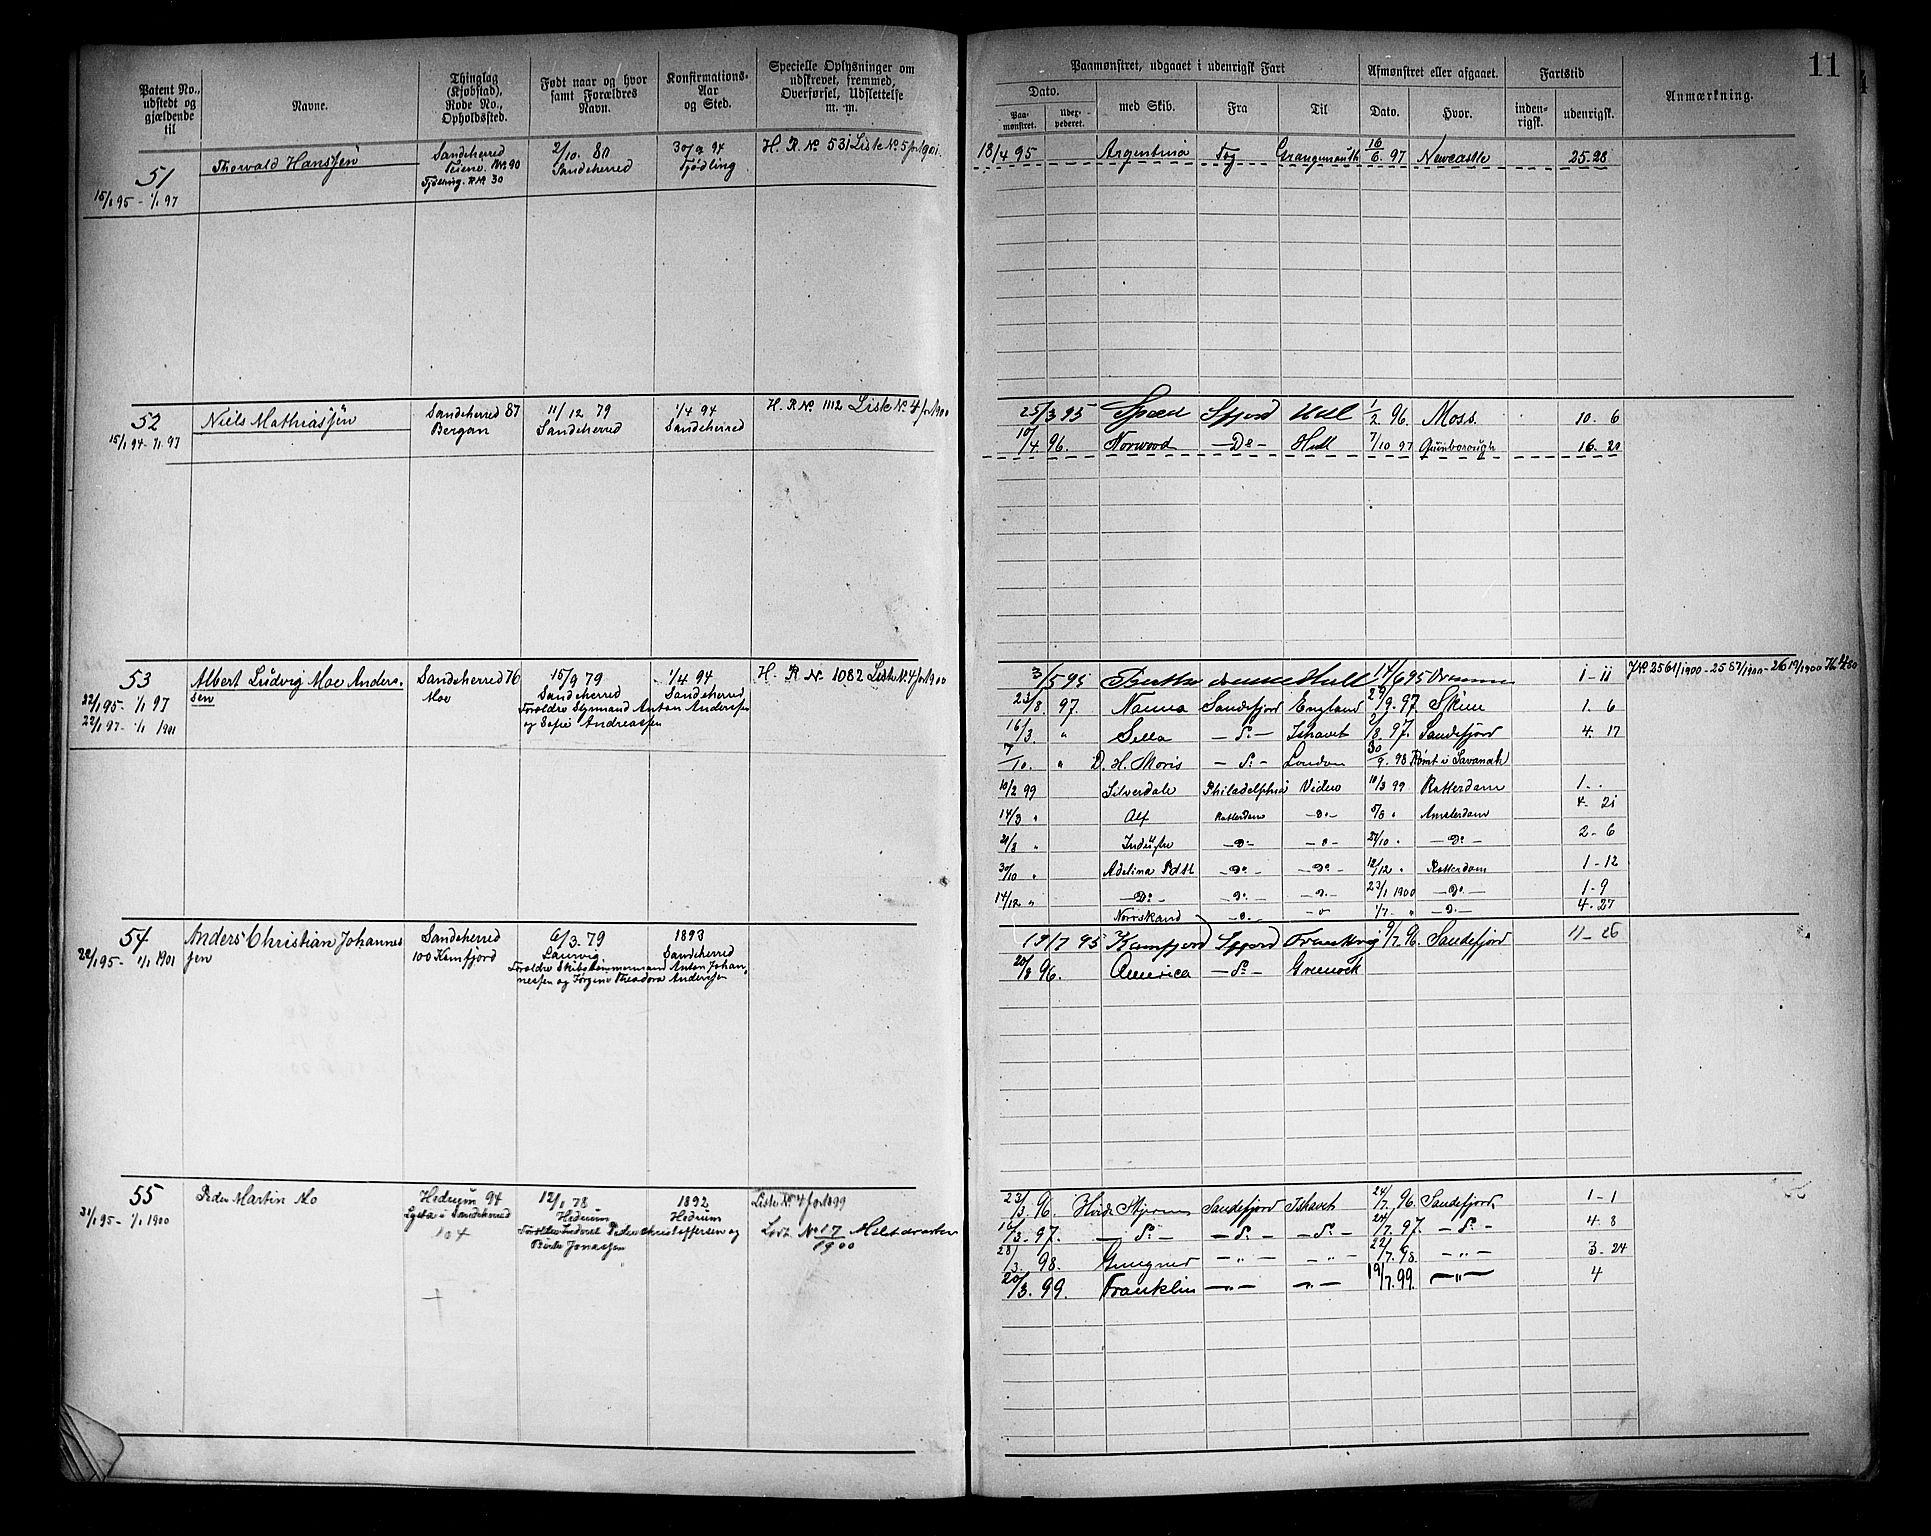 11
Patent No., udstedt og gjældende til
Navne.
Thinglag (Kjøbstad), Rode No., Opholdssted.
Født naar og hvor samt Forældres Navn.
Konfirmations-Aar og Sted.
Specielle Oplysninger om udskrevet, fremmed, Overførsel, Udslettelse m. m.
Paamønstret, udgaaet i udenrigsk Fart
Afmønstret eller afgaaet.
Fartstid
Anmærkning.
Dato.
Paa-mønstret.
Uder-pederet.
med Skib.
Fra
Til
Dato.
Hvor.
inden-rigsk.
udenrigsk.
51
15/1 95 - 1/1 97
Thorvald Hanssen
Sandeherred
Teiene No 90
2/10. 80
Sandeherred
30/9 94
Tjödling
H. R. No 531 Liste No 5 for 1901.
18/4 95 Argentina Tbg Grangemouth 16/6. 97 Newcastle 25-28
52
15/1 94 - 1/1 97
Niels Mathiassen
Sandeherred 87
Bergan
11/12 79
Sandeherred
1/4 94
Sandeherred
H. R No. 1112 Liste No 4 for 1900
25/3 95 Speed Sfjord Hull 1/2 96. Moss. 10. 6
10/4. 96. Norwood - Do - Hull 7/10 97 Quinborough 16. 20
53
22/1 95 - 1/1 97
22/1 97 - 1/1 1901
Albert Ludvig Moe Anders.
sen
Sandeherred 76
Moe
15/9 79
Sandeherred
Foreldre Styrmand Anton Anderssen
og Sofie Andreassen
1/4 94
Sandeherred
H. R No. 1082 Liste No. 4 for 1900
3/5 95 Hull 14/6 95 Drammen 1-11
23/8. 97. Nanna Sandefjord England 29/9. 97 Skien 1. 6
16/3. " Sella - do - Ishavet 2/8. 97. Sandefjord 4. 17
7/10. " D. H. Moris - do - London 30/9. 98 Rømt i Savanah
10/2 99 Silverdale Philadelphia Videre 10/3 99 Rotterdam 1. .
14/3 " Alf Rotterdam - Do - 5/8 " Amsterdam 4. 21
21/8 " - Do - - o - 27/10 " - Do - 2-6
30/10 " Adelina - Do - - Do - 12/12 " Rotterdam 1-12
14/12 " - Do - - Do - - o - 23/1 1900 - Do - 1-9
Norrskand - o - - o - 1/7. " - o - 4. 27
54
22/1 95 - 1/1 1901
Anders Christian Johannes
sen
Sandeherred
100 Kamfjord
6/3. 79
Laurvig
Foreldre Skibstømmermand Anton Johan-
nessen og Jørgine Theodora Anderssen
1893
Sandeherred
19/7 95 Kamfjord Sfjord 9/7. 96. Sandefjord 11-26
20/8 96. America - do - Greenock
55
31/1 95 - 1/1 1900
Peder Martin Mo
Hedrum 94
i Sandeherred
104
12/1 78
Hedrum
Foreldre Inderst Peder Christoffersen og
Berte Jonassen
1892
Hedrum
Liste No 4 for 1899
No 17/1900
23/3. 96. Hvide Stjernen Sandefjord Ishavet 24/7. 96. Sandefjord. 1-1
16/3. 97. - do - - do - - do - 24/7. 97. - do - 4. 8
28/3. 98. Gungner - " - - " - 22/7. 98. - " - 3-24
20/3. 99. Franklin - " - - " - 19/7. 99. - " - 4